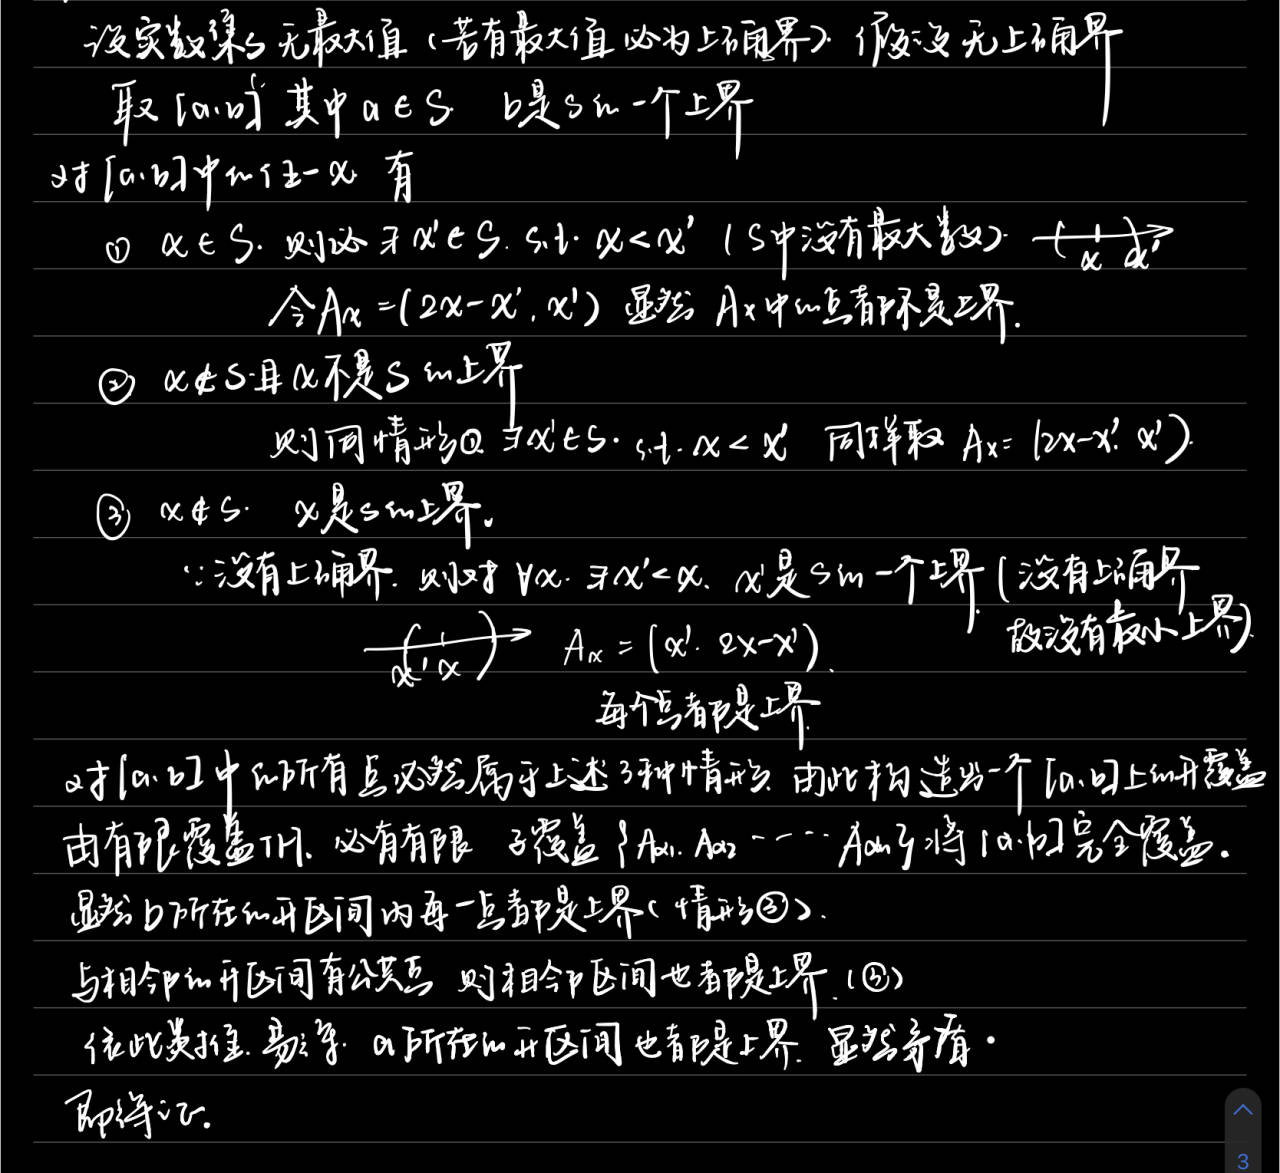 设实数集S 无最大值 (若有最大值 必为上确界). 假设无上确界
取[a.b] 其中 a∈S. b是S的一个上界
对[a.b]中的任一x. 有
① x∈S. 则必∃x'∈S. s.t. x<x' (S中没有最大数). x x'
令Ax=(2x-x', x') 显然 Ax中的点都不是上界.
② x∉S且x不是S的上界
则同情形①. ∃x'∈S. s.t. x<x' 同样取 Ax=(2x-x', x').
③ x∉S. x是S的上界.
∵没有上确界. 则对∀x. ∃x'<x. x'是S的一个上界 (没有上确界
故没有最小上界).
x' x Ax=(x'. 2x-x').
每个点都是上界.
对[a.b]中的所有点必然属于上述3种情形. 由此构造出一个[a.b]上的开覆盖
由有限覆盖TH. 必有有限 子覆盖{Ax1. Ax2 ······ Axn}将[a.b]完全覆盖.
显然b所在的开区间内每一点都是上界(情形③).
与相邻的开区间有公共点 则相邻区间也都是上界.(③)
依此类推. 易得. a所在的开区间也都是上界. 显然矛盾.
即得证.
3